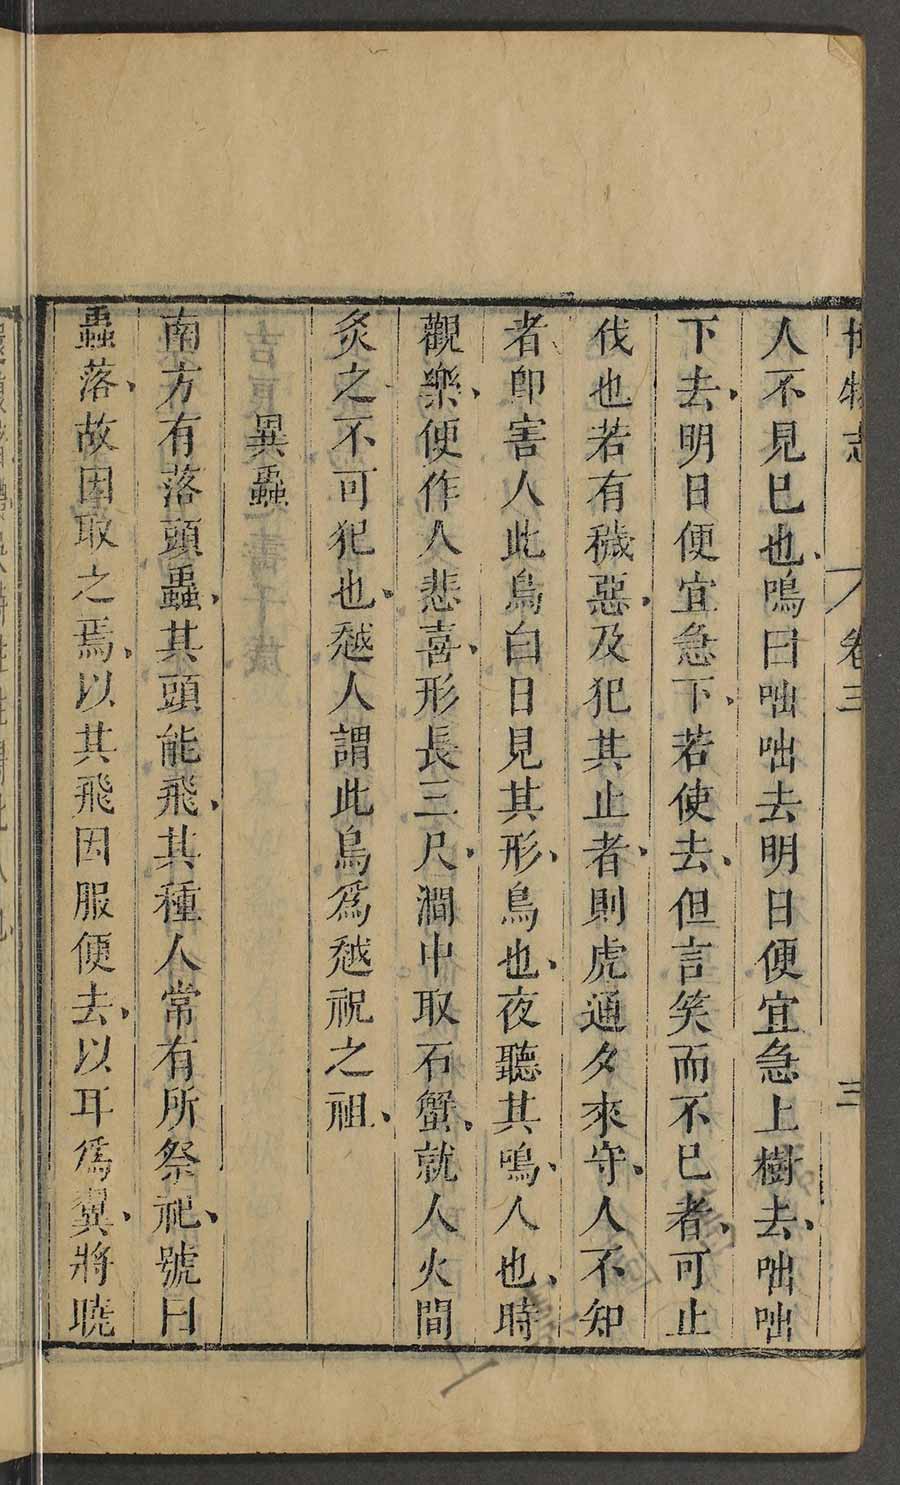 博物志 卷三 三
人不見巳也鳴曰咄咄去明日便宜急上樹去咄咄
下去明日便宜急下若使去但言笑而不巳者可止
伐也若有穢惡及犯其止者則虎通夕來守人不知
者卽害人此鳥白日見其形鳥也夜聽其鳴人也時
觀樂便作人悲喜形長三尺澗中取石蟹就人火間
炙之不可犯也越人謂此鳥爲越祝之祖
異蟲
南方有落頭蟲其頭能飛其種人常有所祭祀號曰
蟲落故因取之焉以其飛因服便去以耳爲翼將曉